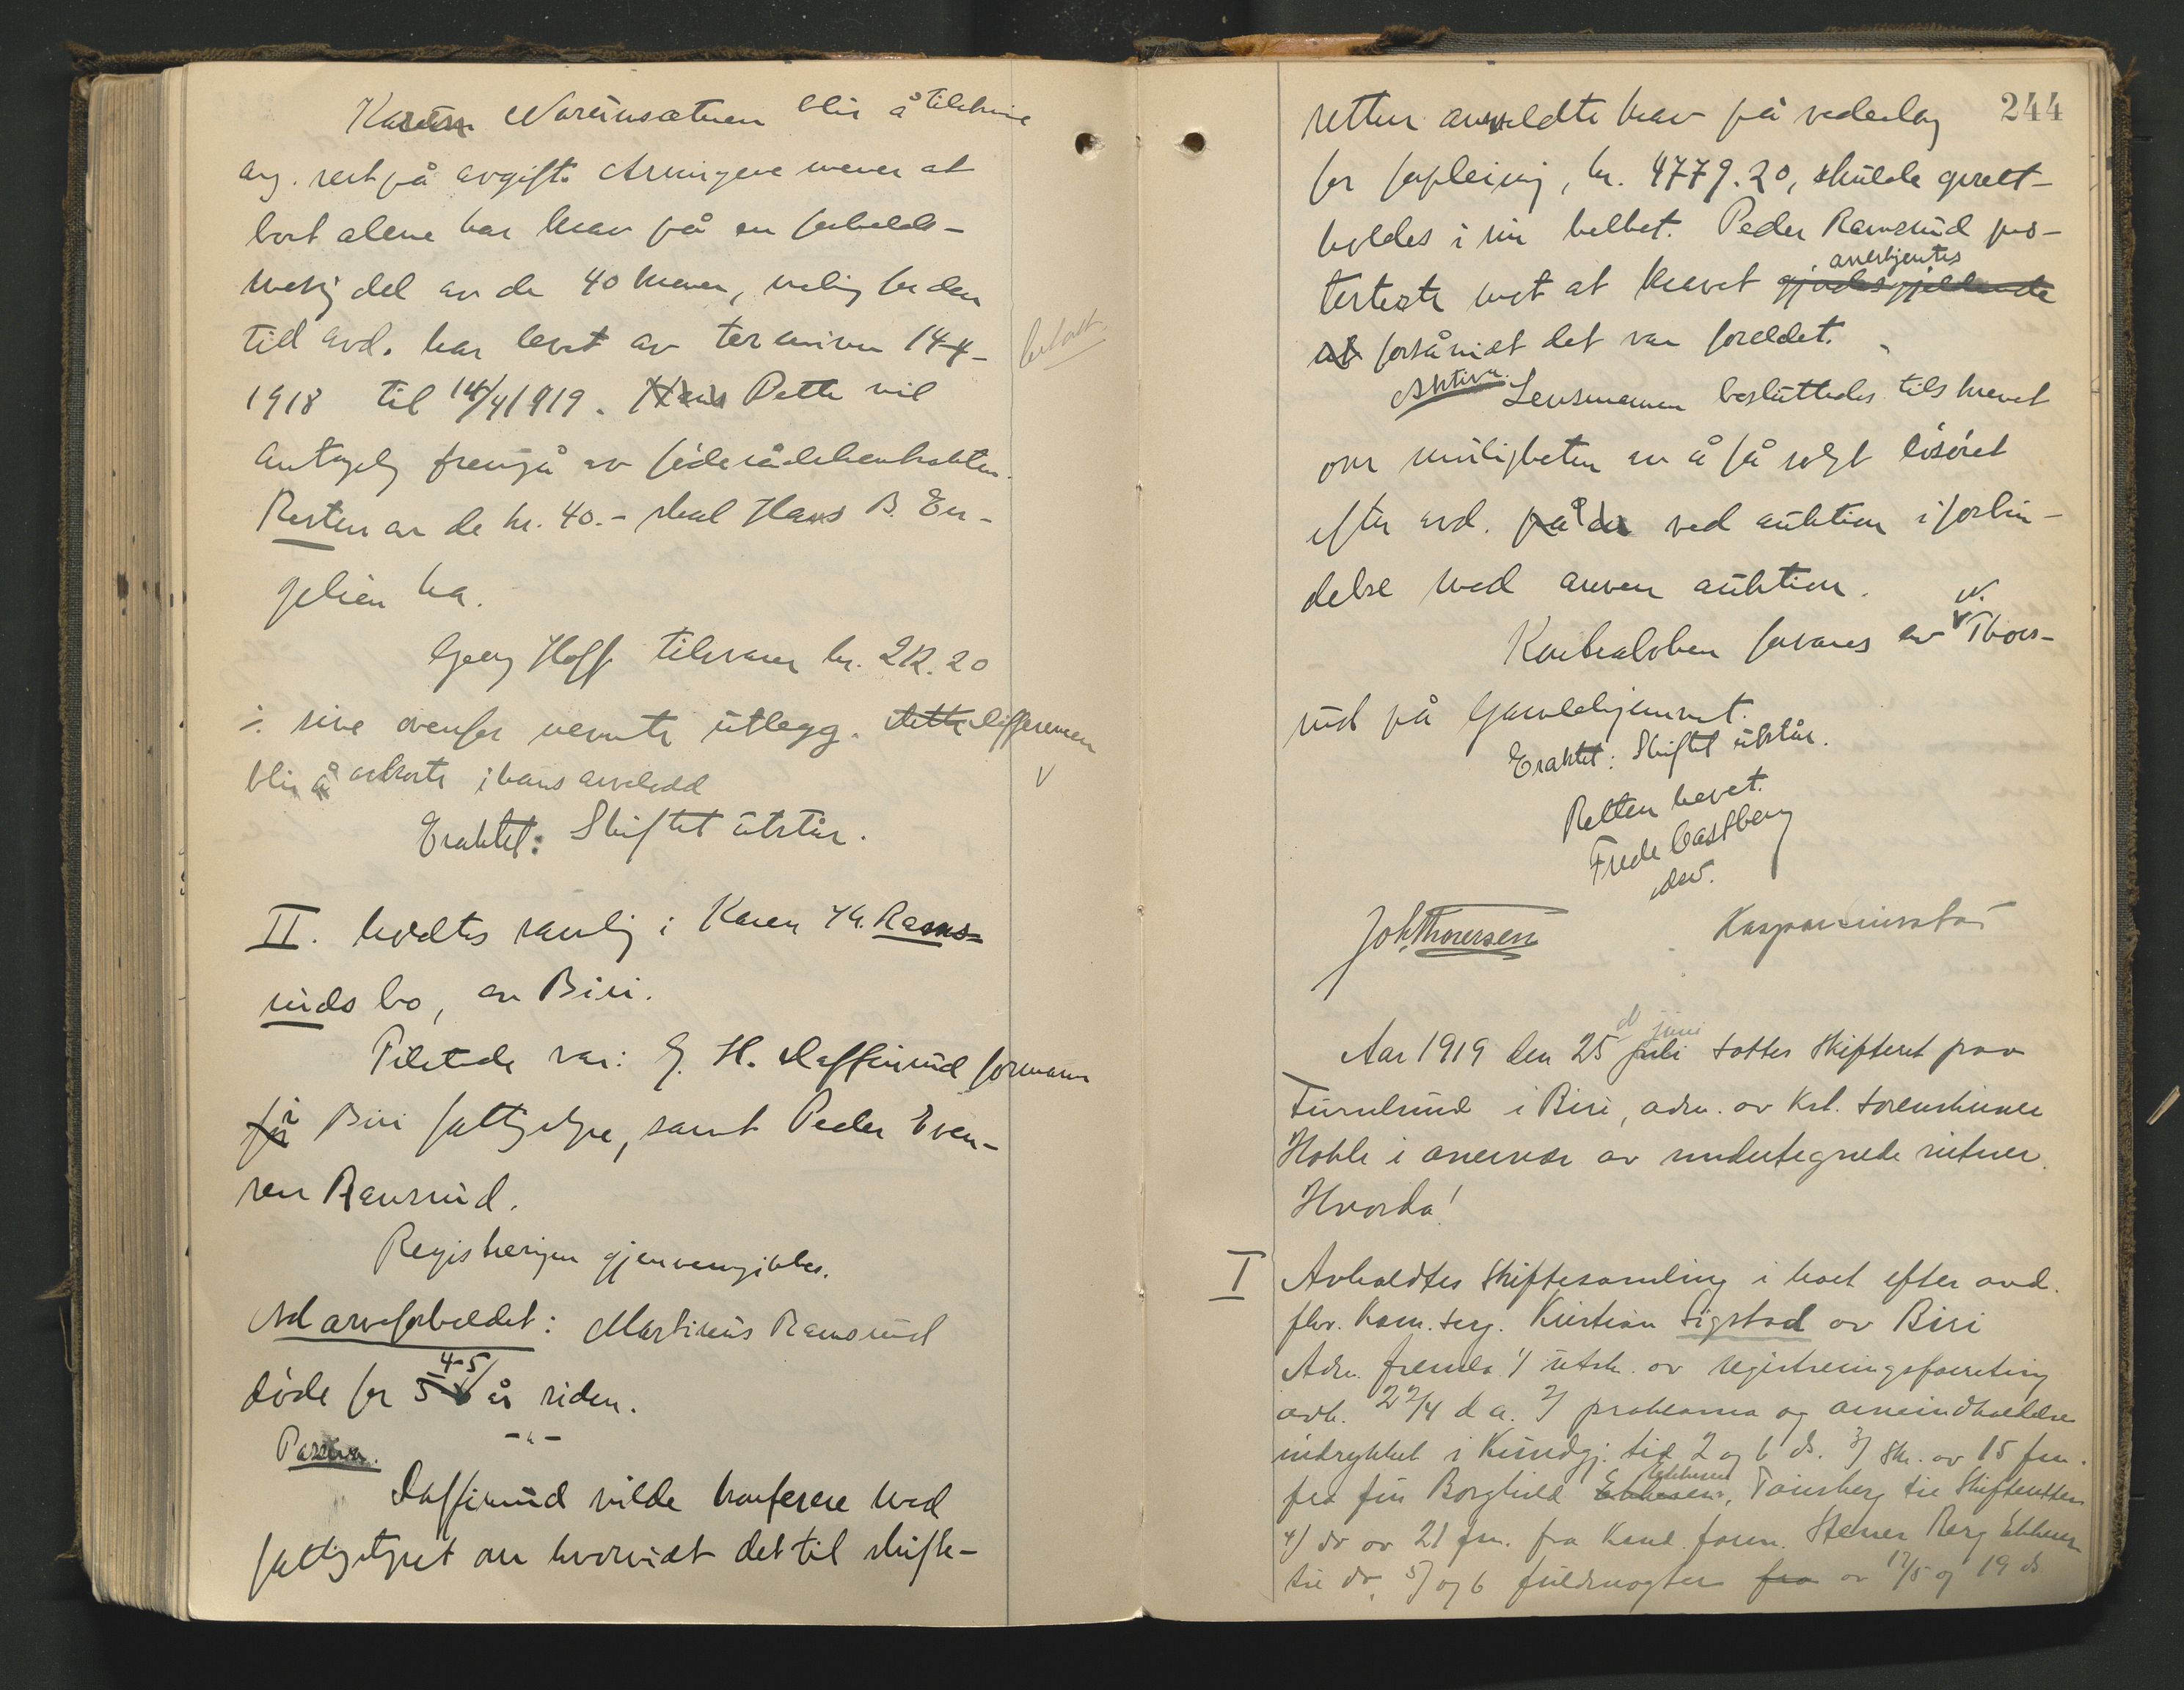 Karen Nordinsætnen blir å tilskrive
ang. rest på avgift. Arvingene mener at
boet alene har krav på en forholds-
mæsig del av de 40 kroner, nemlig for den
tid avd. har levet av terminen 14-4-
1918 til 14/4 1919. Hans Dette vil
antagelig fremgå av føderådskontrakten.
Resten av de kr. 40.- skal Hans B. En-
gelien ha.
Georg Hoff tilsvarer kr. 212.20
÷ sine ovenfor nevnte utlegg. Dette Differensen
blir å avkorte i hans arvelodd
Eraktet: Skiftet utstår.
betalt
II. holdtes samling i Karen H. Rams-
ruds bo, av Biri.
Tilstede var: G. H. Daffinrud formann
for i Biri fattigstyre, samt Peder Even-
sen Ramsrud.
Registreringen gjennemgikkes.
Ad arveforholdet: Martinus Ramsrud
døde for 4-5 år siden.
Passiva.
Daffinrud vilde konferere med
fattigstyret om hvorvidt det til skifte-
244
retten anmeldte krav på vederlag
for forpleining, kr. 4779.20, skulde oprett-
holdes i sin helhet. Peder Ramsrud pro-
testerte mot at kravet gjordes gjeldende anerkjentes
forsåvidt det var foreldet.
Aktiva. Lensmannen besluttedes tilskrevet
om muligheten av å få solgt løsøret
efter avd. på de ved auktion i forbin-
delse med annen auktion.
Kontraboken forvares av Thors-
rud på Gamlehjemmet.
Eraktet: Skiftet utstår.
Retten hevet.
Frede Castberg
edsv.
Joh. Thoresen
Aar 1919 den 25 juli juni sattes skifteret paa
i Biri, adm. av Kst. sorenskriver
Hohle i overvær av undertegnede vitner.
Hvorda!
I Avholdtes skiftesamling i boet efter avd.
fhv. kom. serg. Kristian Sigstad av Biri
Adm. fremla 1/ utsk. av registreringsforretning
avh. 22/4 d a. 2/ proklama og arveindkaldelse
indrykket i Kundgj. tid 2 og 6 ds. 3/ skr. av 15 fm.
fra frü Borghild Ebbesen, Tønsberg til Skifteretten
4/ do av 21 fm. fra Kand. farm. Steener Berg Ebbesen
til do, 5/ og 6 fuldmagter fra av 17/5 og 19 ds